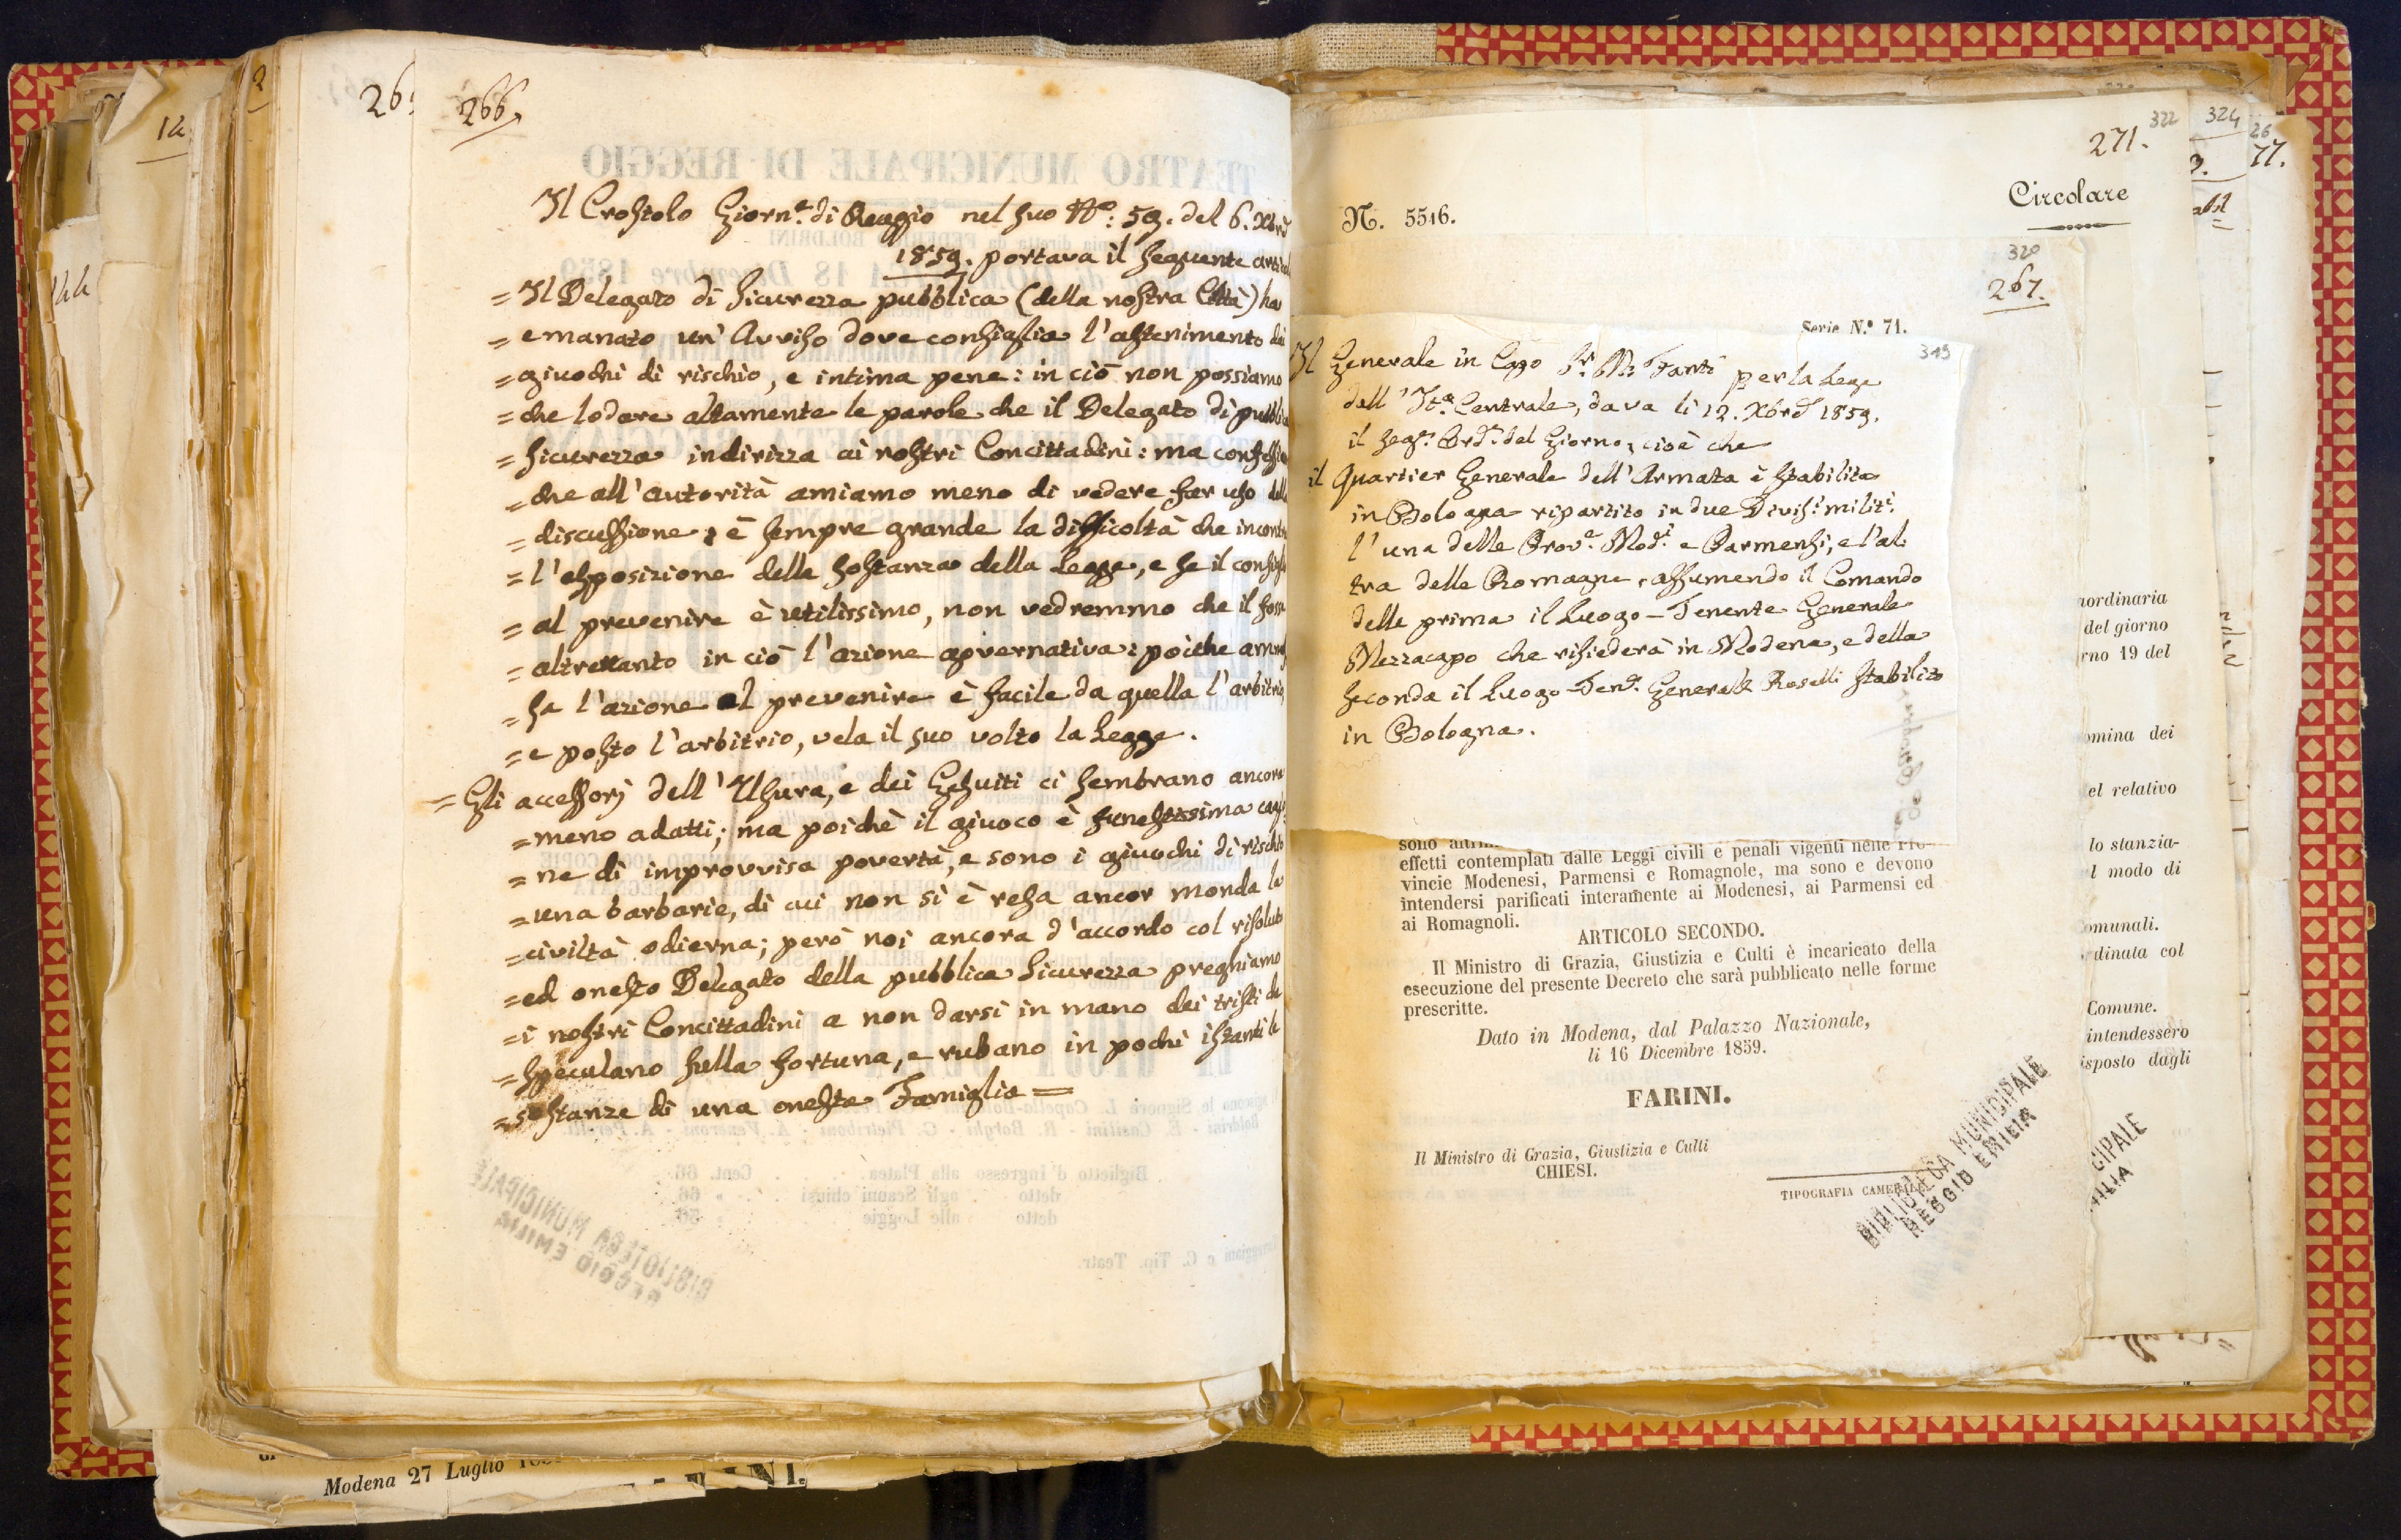 266.
Il Crostolo Giorn.e di Reggio nel suo N.o: 59. del 6. Xbre
1859. portava il seguente artical
= Il Delegato di Sicurezza pubblica (della nostra Città) ha
= emanato un' Avviso dove consiglia l'astenimento dai
= giuochi di rischio, e intima pene: in ciò non possiamo
= che lodare altamente le parole che il Delegato di pubblica
= Sicurezza indirizza ai nostri Concittadini: ma confessia
= che all'autorità amiamo meno di vedere far uso della
= discussione; è sempre grande la difficoltà che incontra
= l'esposizione della sostanza della Legge, e se il consiglio
= al prevenire è utilissimo, non vedremmo che il fosse
= altrettanto in ciò l'azione governativa: poiche ammes
= sa l'azione al prevenire è facile da quella l'arbitrio,
= e posto l'arbitrio, vela il suo volto la Legge.
= Gli accessorj dell'Usura, e dei Gesuiti ci sembrano ancora
= meno adatti; ma poichè il giuoco è funestissima cagio
= ne di improvvisa povertà, e sono i giuochi di rischio
= una barbarie, di cui non si è resa ancor monda la
= civiltà odierna; però noi ancora d'accordo col risoluto
= ed onesto Delegato della pubblica Sicurezza preghiamo
= i nostri Concittadini a non darsi in mano dei tristi che
= speculano sulla fortuna, e rubano in pochi istanti le
= sostanze di una onesta Famiglia =
BIBLIOTECA MUNICIPALE
REGGIO EMILIA
Modena 27 Luglio
322
271.
Circolare
N. 5516.
320
267.
Serie N.º 71.
319
Il Generale in Capo S.r M. Fanti per la Lega
dell'It.a Centrale, dava li 12. Xbre 1859.
il seg.e Ord.e del Giorno, cioè che
il Quartier Generale dell'Armata è stabilito
in Bologna ripartito in due Divis.i milit.i
l'una delle Prov.e Mod.i e Parmensi, e l'al:
tra delle Romagne, assumendo il Comando
della prima il Luogo-Tenente Generale
Mezzacapo che risiederà in Modena, e della
seconda il Luogo-Ten.e Generale Roselli stabilito
in Bologna.
effetti contemplati dalle Leggi civili e penali vigenti nelle Pro-
vincie Modenesi, Parmensi e Romagnole, ma sono e devono
intendersi parificati interamente ai Modenesi, ai Parmensi ed
ai Romagnoli.
ARTICOLO SECONDO.
Il Ministro di Grazia, Giustizia e Culti è incaricato della
esecuzione del presente Decreto che sarà pubblicato nelle forme
prescritte.
Dato in Modena, dal Palazzo Nazionale,
li 16 Dicembre 1859.
FARINI.
Il Ministro di Grazia, Giustizia e Culti
CHIESI.
TIPOGRAFIA CAMERALE
BIBLIOTECA MUNICIPALE
REGGIO EMILIA
324
26
77.
del giorno
rno 19 del
omina dei
el relativo
lo stanzia-
l modo di
omunali.
dinata col
Comune.
intendessero
isposto dagli